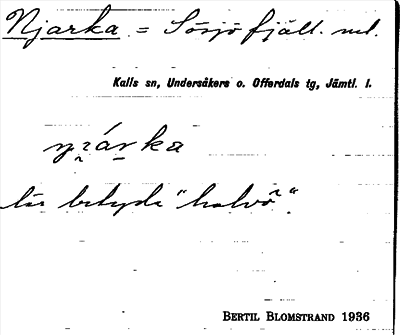 Njarka = Sösjöfjäll. nd.
Kalls sn, Undersåkers o. Offerdals tg, Jämtl. l.
njárka
lär betyda "halvö".
BERTIL BLOMSTRAND 1936